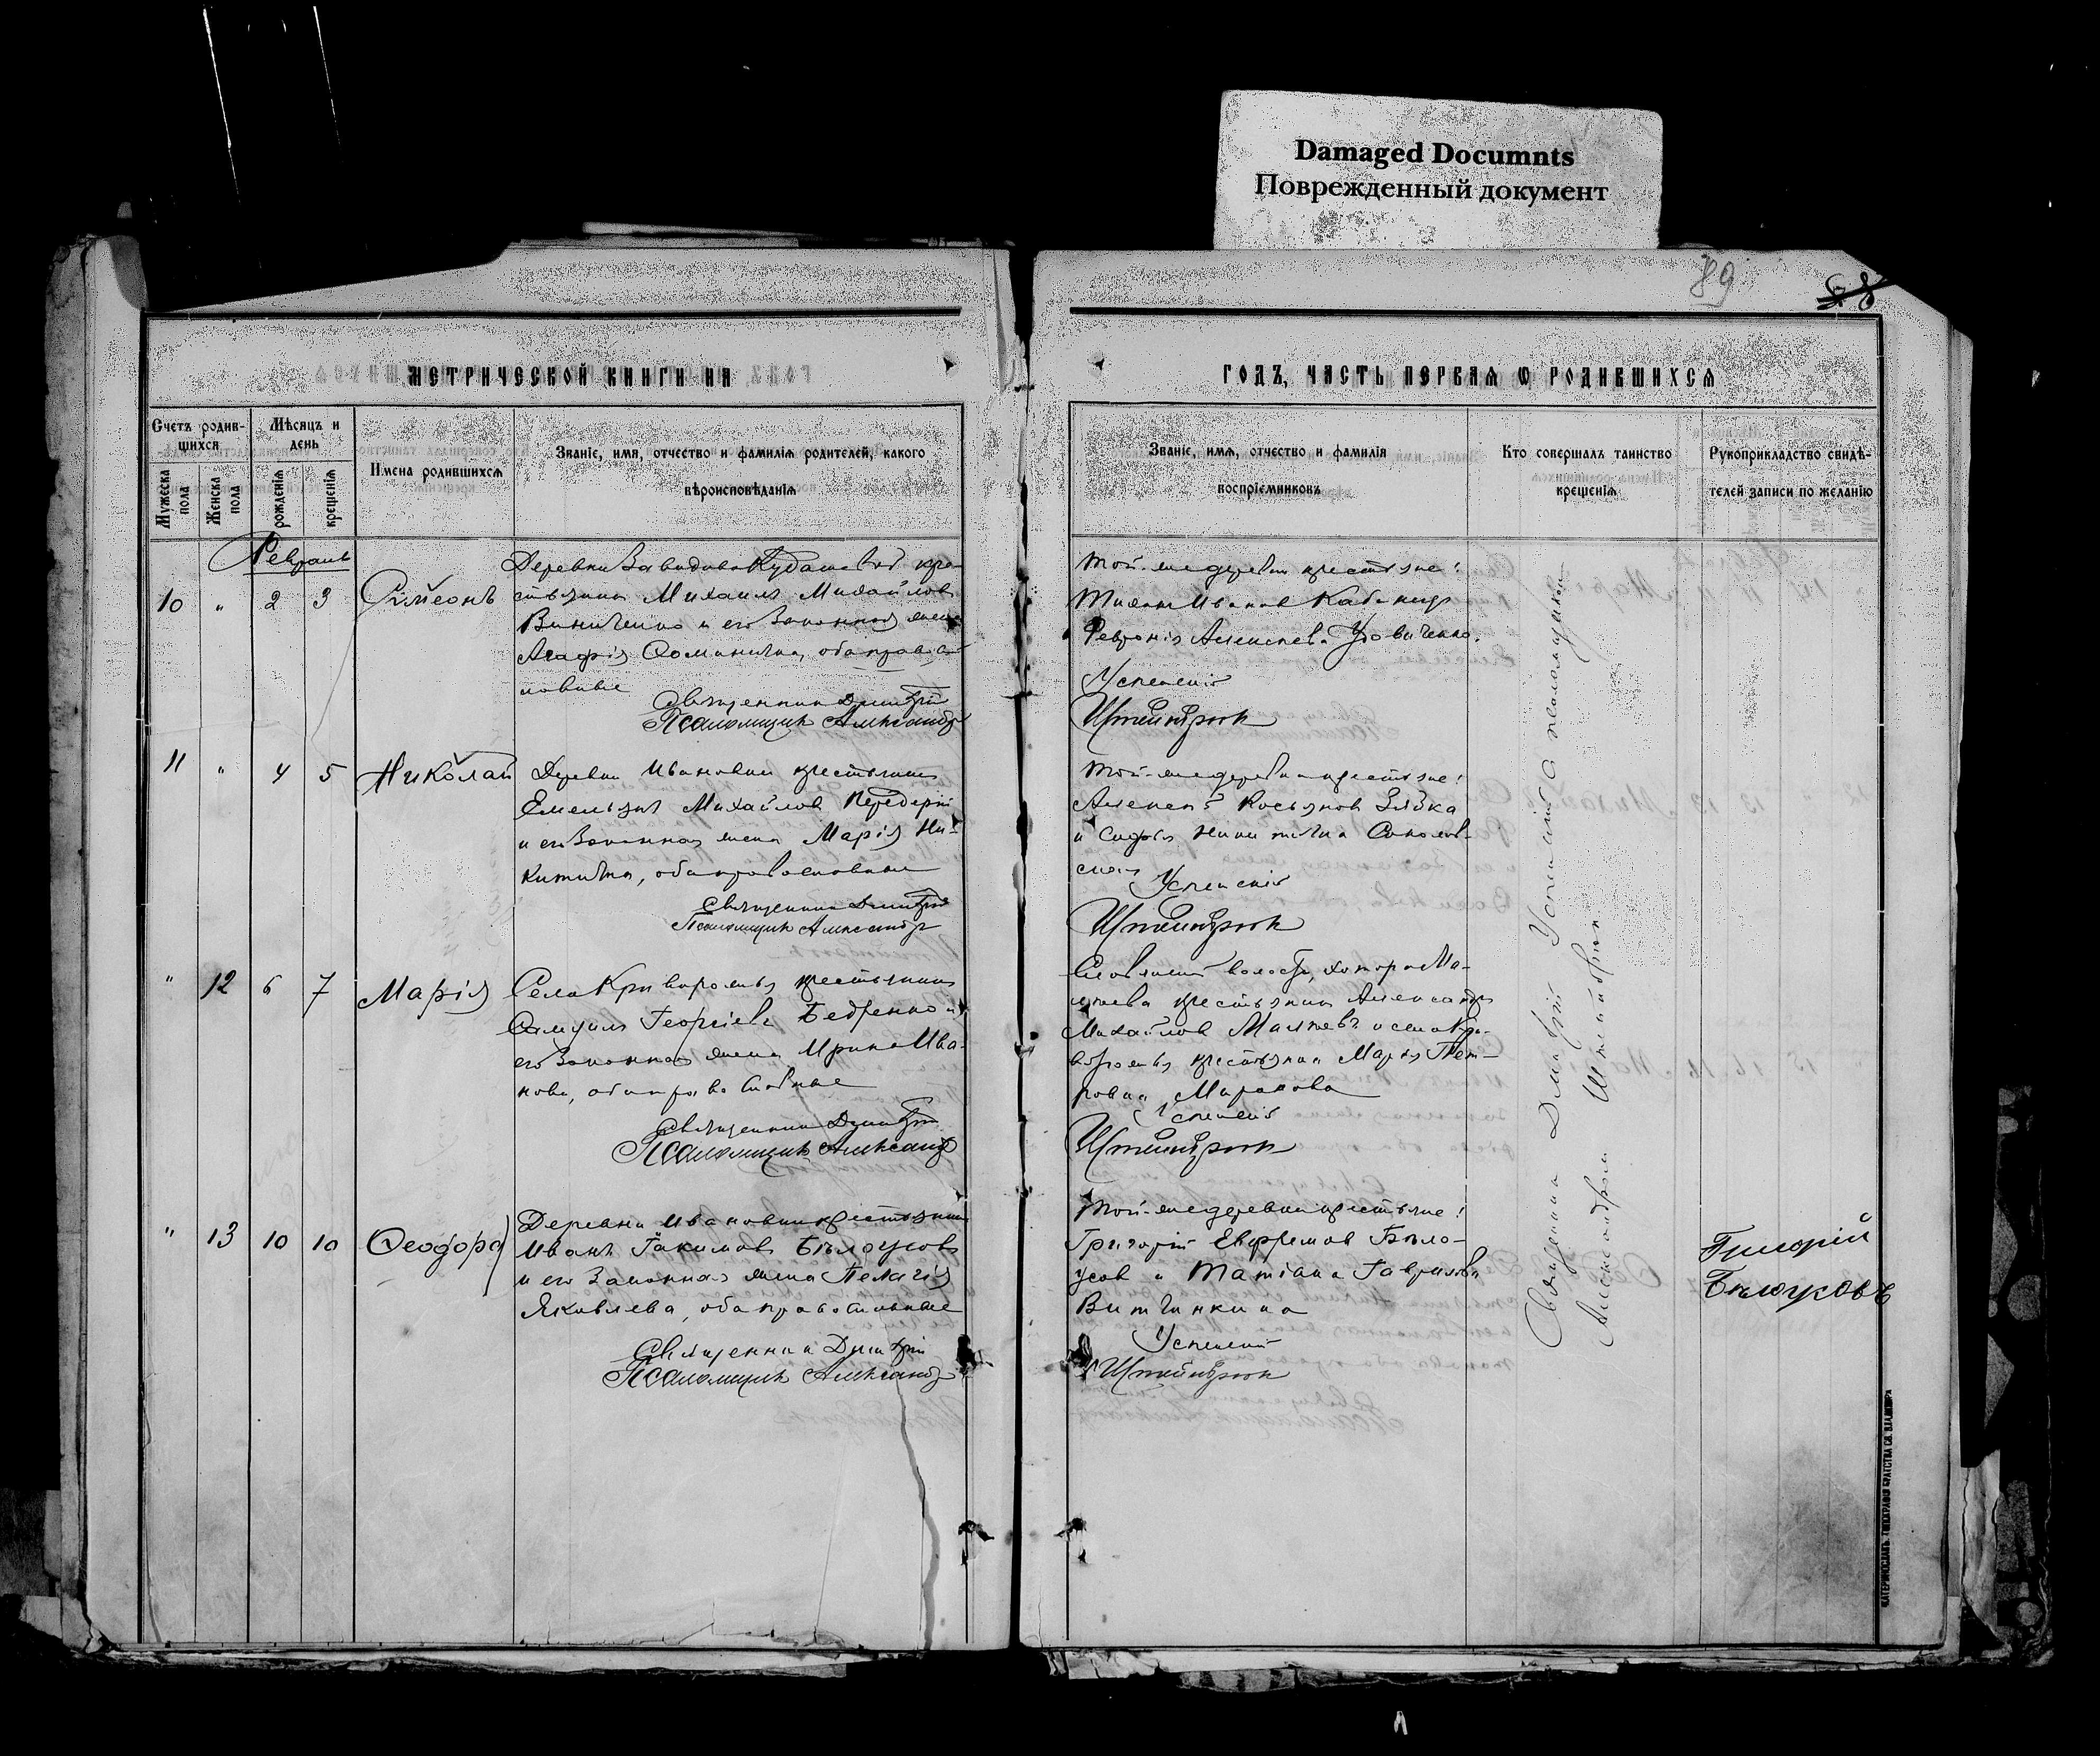 Damaged Documnts
Поврежденный документ
89
68
МЕТРИЧЕСКОЙ КНИГИ НА
ГОДЪ, ЧАСТЬ ПЕРВАЯ Ѡ РОДИВШИХСЯ
Счетъ родив-
шихся
Мѣсяцъ и
день
Мужеска
пола
Женска
пола
рожденія
крещенія
Имена родившихся
Званіе, имя, отчество и фамилія родителей, какого
вѣроисповѣданія
Званіе, имя, отчество и фамилія
воспріемниковъ
Кто совершалъ таинство
крещенія
Рукоприкладство свидѣ-
телей записи по желанію
Февраль
10 " 2 3
Сѵмеонъ
Деревни Завидово Кудашевой кре-
стьянинъ Михаилъ Михайловъ
Виниченко и его законная жена
Агафія, оба право
славные
Священникъ Димитрій
Псаломщикъ Александръ
Той-же деревни крестьяне:
Иванов
Февронія Алексеева
Успенскій
Штейнбрюк
11 " 4 5
Николай
Деревни Ивановки крестьянинъ
Емельянъ Михайлов Передерій
и его законная жена Марія Ни-
китична, оба православные
Священникъ Димитрій
Псаломщикъ Александръ
Той-же деревни крестьяне:
Алексей Косьянов Зайка
и Софья Никитична Соколов-
ская
Успенскій
Штейнбрюк
" 12 6 7
Марія
Села Криворожья крестьянинъ
Самуилъ Георгіевъ Бедренко и
его законная жена Ирина Ива-
нова, оба православные
Священникъ Димитрій
Псаломщикъ Александръ
волости, хутора Ма-
лжева крестьянинъ Александръ
Михайлов Малжевъ и села Кри-
ворожья крестьянка Марія Пет-
ровна
Успенскій
Штейнбрюк
" 13 10 10
Ѳеодора
Деревни Ивановки крестьянинъ
Иванъ Іакимовъ Бѣлоусовъ
и его законная жена Пелагія
Яковлева, оба православные
Священникъ Димитрій
Псаломщикъ Александръ
Той-же деревни крестьяне:
Григорій Евфремов Бѣло-
усов и Татіана Гаврилова
Витчинкина
Успенскій
Штейнбрюк
Священникъ Димитрій Успенскій с псаломщикомъ
Александромъ Штейнбрюк
Григорій
Бѣлоусовъ